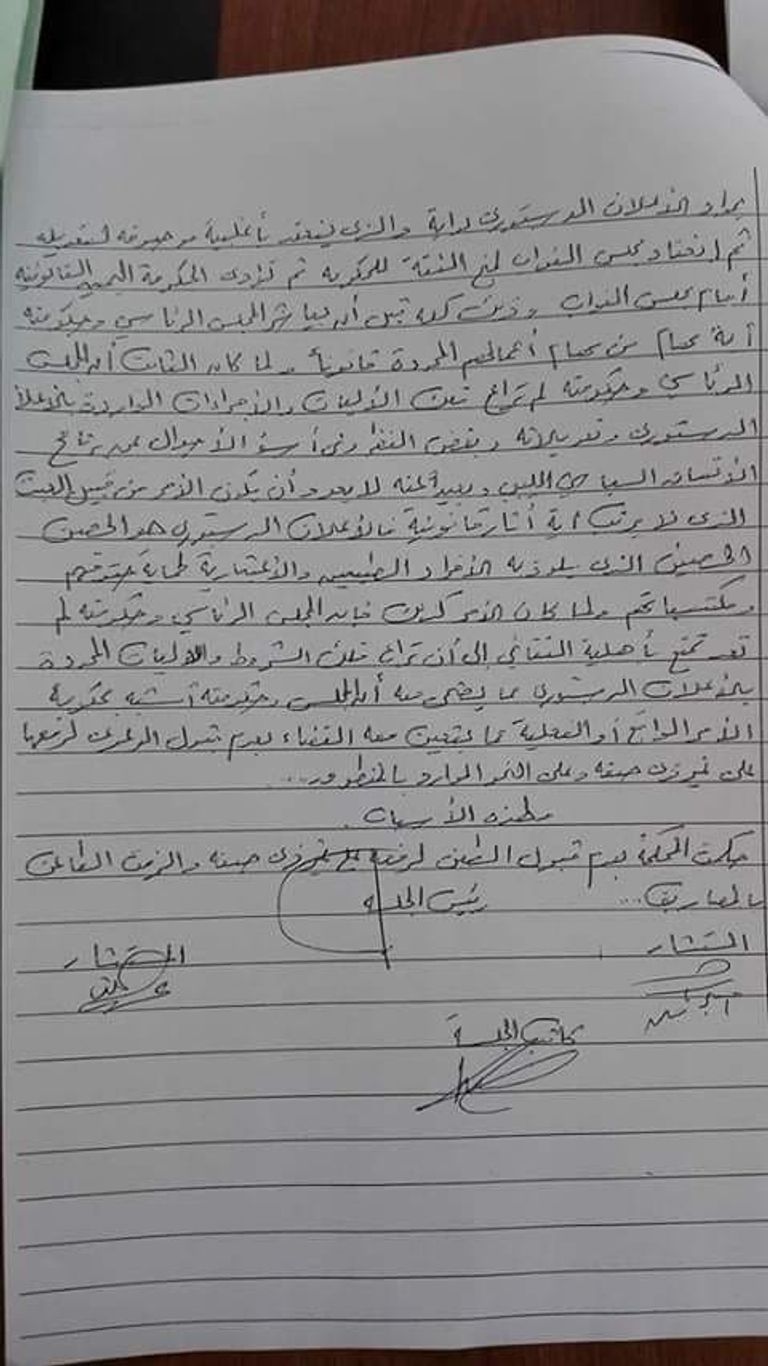 بمواد الإعلان الدستوري بداية والذي ينعقد بأغلبية موصوفة لتعديله
ثم انعقاد مجلس النواب لمنح الثقة للحكومة ثم تؤدى الحكومة اليمين القانونية
أمام مجلس النواب وذلك كله قبل أن يباشر المجلس الرئاسي وحكومته
أية مهام من مهام أعمالهم المحددة قانوناً ولما كان الثابت أن المجلس
الرئاسي وحكومته لم تراع تلك الآليات والإجراءات الواردة بالإعلان
الدستوري وتعديلاته وبغض النظر وفي أسوء الأحوال عن نتائج
الاتفاق السياسي الليبي وبعيداً عنه لا يعدو أن يكون الأمر من قبيل العبث
الذي لا يرتب أية أثار قانونية فالإعلان الدستوري هو الحصن
الحصين الذي يلوذ به الأفراد الطبيعيين والاعتبارية لحماية حقوقهم
ومكتسباتهم ولما كان الأمر كذلك فإن المجلس الرئاسي وحكومته لم
تعد تتمتع بأهلية التقاضي إلى أن تراع تلك الشروط والآليات المحددة
بالإعلان الدستوري مما يضحى معه أن المجلس وحكومته أشبه بحكومة
الأمر الواقع أو الفعلية مما يتعين معه القضاء بعدم قبول الدعوى لرفعها
على غير ذى صفه وعلى النحو الوارد بالمنطوق...
فلهذه الأسباب
حكمت المحكمة بعدم قبول الطعن لرفعه على غير ذى صفه والزمت الطاعن
بالمصاريف... رئيس الجلسة
المستشار المستشار
كاتب الجلسة